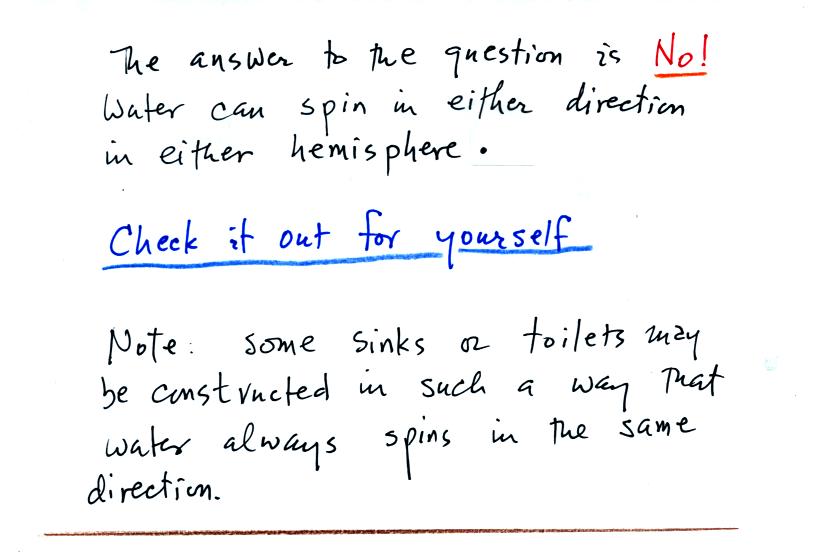 The answer to the question is No!
Water can spin in either direction
in either hemisphere.
Check it out for yourself
Note: some sinks or toilets may
be constructed in such a way that
water always spins in the same
direction.